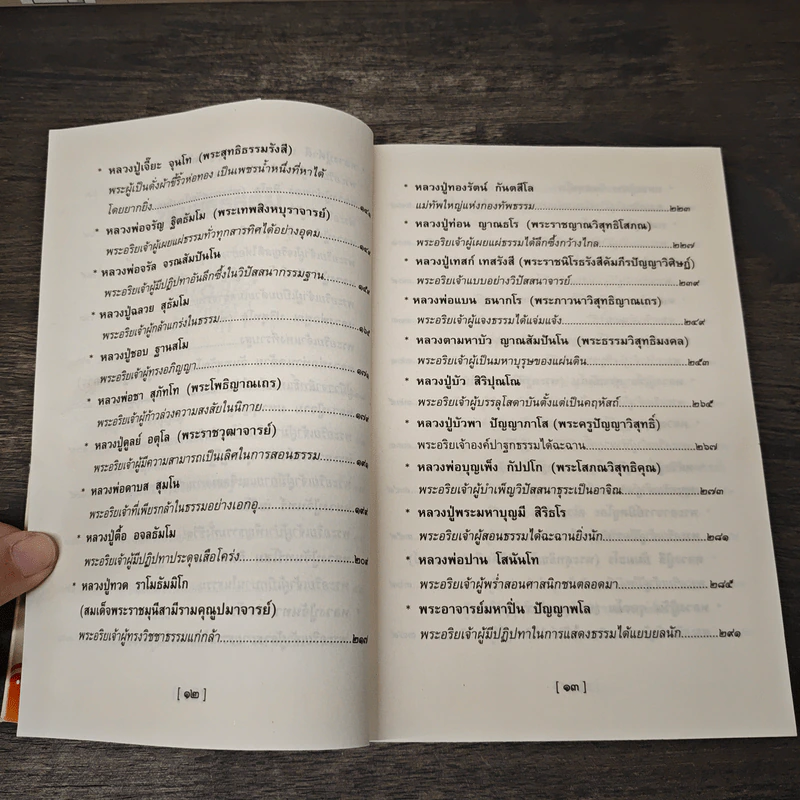 * หลวงปู่เจี๊ยะ จุนโท (พระสุทธิธรรมรังสี)
พระผู้เป็นดั่งผ้าขี้ริ้วห่อทอง เป็นเพชรน้ำหนึ่งที่หาได้
โดยยากยิ่ง
หลวงพ่อจรัญ ฐิตธัมโม (พระเทพสิงหบุราจารย์)
พระอริยเจ้าผู้เผยแผ่ธรรมทั่วทุกสารทิศได้อย่างอุดม
* หลวงพ่อจรัล จรณสัมปันโน
พระอริยเจ้าผู้มีปฏิปทาอันลึกซึ้งในวิปัสสนากรรมฐาน
* หลวงปู่ฉลวย สุธัมโม
พระอริยเจ้าผู้กล้าแกร่งในธรรม
* หลวงปู่ชอบ ฐานสโม
พระอริยเจ้าผู้ทรงอภิญญา
* หลวงพ่อชา สุภัทโท (พระโพธิญาณเถร)
พระอริยเจ้าผู้ก้าวล่วงความสงสัยในนิกาย
* หลวงปู่ดูลย์ อตุโล (พระราชวุฒาจารย์)
พระอริยเจ้าผู้มีความสามารถเป็นเลิศในการสอนธรรม
* หลวงพ่อดาบส สุมโน
พระอริยเจ้าที่เพียรกล้าในธรรมอย่างเอกอุ
* หลวงปู่ตื้อ อจลธัมโม
พระอริยเจ้าที่มีปฏิปทาประดุจเสือโคร่ง
* หลวงปู่ทวด ราโมธัมมิโก
(สมเด็จพระราชมุนีสามีรามคุณูปมาจารย์)
พระอริยเจ้าผู้ทรงวิชชาธรรมแก่กล้า...๒๑๗
[ ๑๒ ]
* หลวงปู่ทองรัตน์ กันตสีโล
แม่ทัพใหญ่แห่งกองทัพธรรม...๒๒๓
* หลวงปู่ท่อน ญาณธโร (พระราชญาณวิสุทธิโสภณ)
พระอริยเจ้าผู้เผยแผ่ธรรมได้ลึกซึ้งกว้างไกล...๒๒๗
* หลวงปู่เทสก์ เทสรังสี (พระราชนิโรธรังสีคัมภีรปัญญาวิศิษฏ์)
พระอริยเจ้าแบบอย่างวิปัสสนาจารย์...๒๓๙
* หลวงพ่อแบน ธนากโร (พระภาวนาวิสุทธิญาณเถร)
พระอริยเจ้าผู้แจงธรรมได้แจ่มแจ้ง...๒๔๙
* หลวงตามหาบัว ญาณสัมปันโน (พระธรรมวิสุทธิมงคล)
พระอริยเจ้าผู้เป็นมหาบุรุษของแผ่นดิน...๒๕๓
* หลวงปู่บัว สิริปุณโณ
พระอริยเจ้าผู้บรรลุโสดาบันตั้งแต่เป็นคฤหัสถ์...๒๖๕
* หลวงปู่บัวพา ปัญญาภาโส (พระครูปัญญาวิสุทธิ์)
พระอริยเจ้าองค์ปาฐกธรรมได้ฉะฉาน...๒๖๗
* หลวงพ่อบุญเพ็ง กัปปโก (พระโสภณวิสุทธิคุณ)
พระอริยเจ้าผู้บำเพ็ญวิปัสสนาธุระเป็นอาจิณ...๒๗๓
* หลวงปู่พระมหาบุญมี สิริธโร
พระอริยเจ้าผู้สอนธรรมได้ฉะฉานยิ่งนัก...๒๘๑
* หลวงพ่อปาน โสนันโท
พระอริยเจ้าผู้พร่ำสอนศาสนิกชนตลอดมา...๒๘๕
* พระอาจารย์มหาปิ่น ปัญญาพโล
พระอริยเจ้าผู้มีปฏิปทาในการแสดงธรรมได้แยบยลนัก...๒๙๑
[ ๑๓ ]